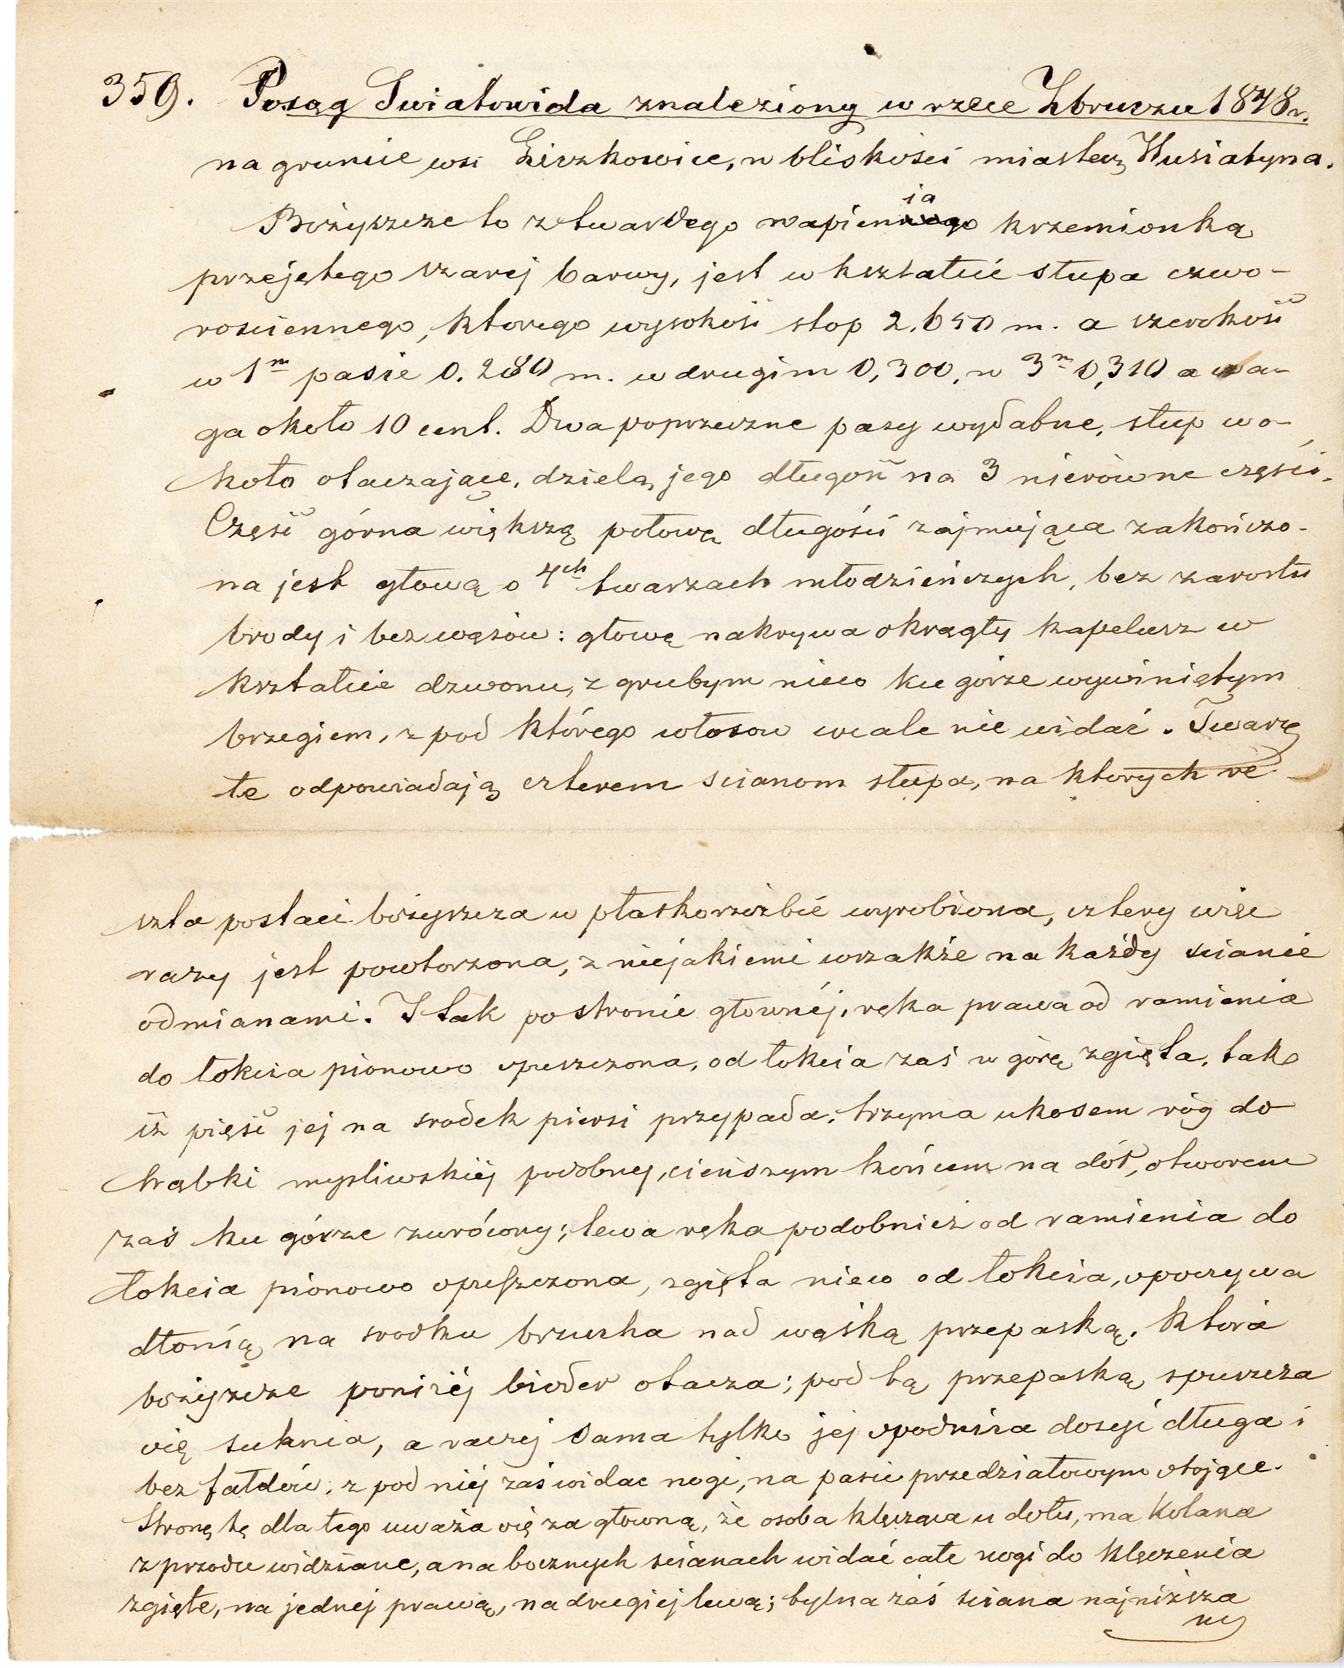 359. Posąg Swiatowida znaleziony w rzece Zbruczu 1848 r.
na gruncie wsi Liczkowice, w bliskości miastecz Husiatyna.
Bożyszcze to z twardego wapienia krzemionką
przejętego szarej barwy, jest w kształcie słupa czwo-
rosciennego, ktorego wysokość stop 2.650 m. a szerokość
w 1m pasie 0.280 m. w drugim 0,300, w 3m 0,310 a wa-
ga około 10 cent. Dwa poprzeczne pasy wydatne, słup wo-
koło otaczające, dzielą jego długość na 3 nierówne części.
Część górna większą połowę długości zajmująca zakończo-
na jest głową o 4ch twarzach młodzieńczych, bez zarostu
brody i bez wąsów: głowę nakrywa okrągły kapelusz w
kształcie dzwonu, z grubym nieco ku górze wywiniętym
brzegiem, z pod którego włosow wcale nie widać. Twarze
te odpowiadają czterem scianom słupa, na ktorych re-
szta postaci bożyszcza w płaskorzeźbie wyrobiona, cztery więc
razy jest powtorzona, z niejakiemi wszakże na każdy scianie
odmianami. I tak po stronie głownéj, ręka prawa od ramienia
do łokcia pionowo opuszczona, od łokcia zaś w górę zgięta, tak
iż pięść jej na srodek piersi przypada, trzyma ukosem róg do
trąbki mysliwskiéj podobny, cieńszym końcem na dół, otworem
zaś ku górze zwrócony; lewa ręka podobnież od ramienia do
łokcia pionowo opuszczona, zgięta nieco od łokcia, spoczywa
dłonią na srodku brzucha nad wąską przepaską, która
bożyszcze poniżéj bioder otacza; pod tą przepaską spuszcza
się suknia, a raczej sama tylko jej spodnica dosyć długa i
bez fałdów; z pod niéj zaś widac nogi, na pasie przedziałowym stojące.
Stronę tę dla tego uważa się za głowną, że osoba klęcząca u dołu, ma kolana
z przodu widziane, a na bocznych scianach widać całe nogi do klęczenia
zgięte, na jednéj prawą, na drugiej lewą; tylna zaś sciana najniższa